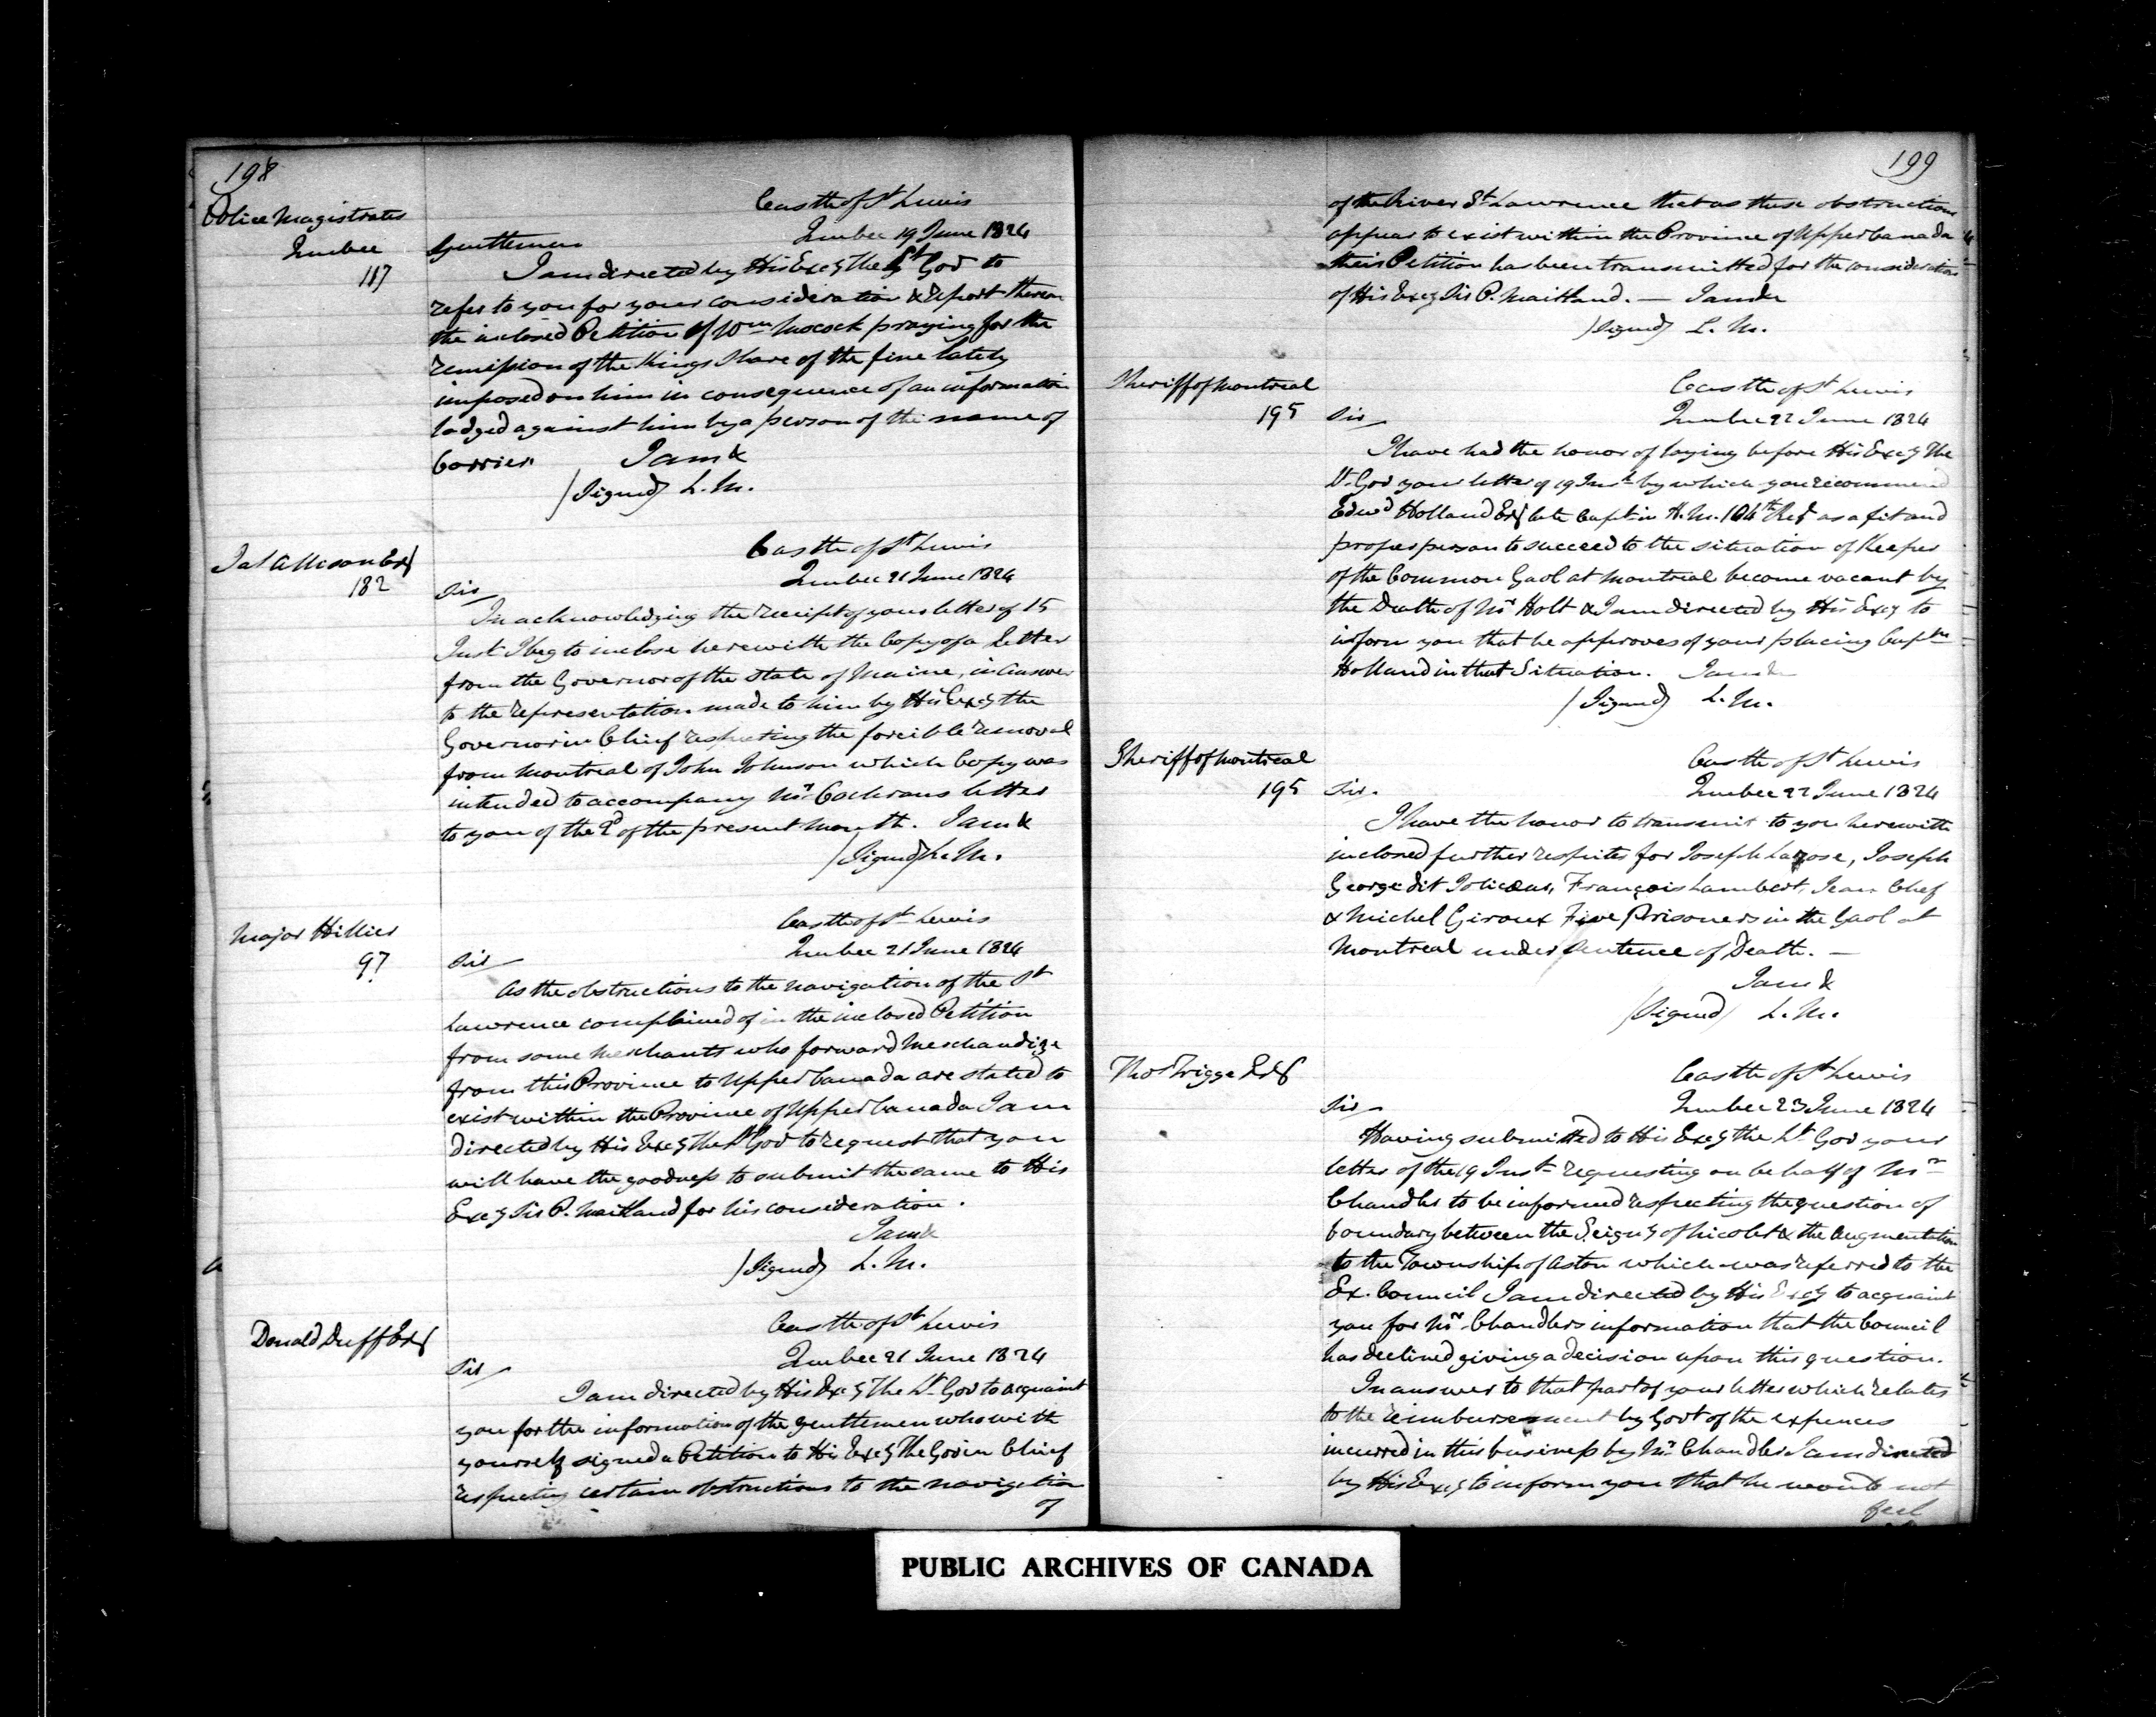 198
Police Magistrates
Quebec
117
Castle of St Lewis
Quebec 19 June 1824
Gentlemen
I am directed by His Excy the Lt Gov to
refer to you for your consideration & report thereon
the inclosed Petition of Wm Mocock praying for the
remission of the Kings Share of the fine lately
imposed on him in consequence of an information
lodged against him by a person of the name of
Carrier. I am &
/Signed/ L. M.
Jas Allison Esq
182
Castle of St Lewis
Quebec 21 June 1824
Sir
In acknowledging the receipt of your letter of 15
Inst I beg to inclose herewith the Copy of a Letter
from the Governor of the State of Maine, in Answer
to the representation made to him by His Excy the
Governor in Chief respecting the forcible removal
from Montreal of John Johnson which Copy was
intended to accompany Mr Cochrans letter
to you of the 2d of the present month. I am &
/Signed/ L. M.
Major Hillier
97
Castle of St Lewis
Quebec 21 June 1824
Sir
As the obstructions to the navigation of the St
Lawrence complained of in the inclosed Petition
from some Merchants who forward Merchandize
from this Province to Upper Canada are stated to
exist within the Province of Upper Canada I am
directed by His Excy the Lt Gov to request that you
will have the goodness to submit the same to His
Excy Sir P. Maitland for his consideration.
I am &
/Signed/ L. M.
Donald Duff Esq
Castle of St Lewis
Quebec 21 June 1824
Sir
I am directed by His Excy The Lt Gov to acquaint
you for the information of the gentlemen who with
yourself signed a Petition to His Excy The Gov in Chief
respecting certain obstructions to the navigation
of
199
of the River St Lawrence that as these obstructions
appear to exist within the Province of Upper Canada
their Petition has been transmitted for the consideration
of His Excy Sir P. Maitland. — I am &
/Signed/ L. M.
Sheriff of Montreal
195
Castle of St Lewis
Quebec 22 June 1824
Sir
I have had the honor of laying before His Excy The
Lt Gov your letter of 19 Inst by which you recommend
Edwd Holland Esq late Capt in H. M. 104th Regt as a fit and
proper person to succeed to the situation of Keeper
of the Common Gaol at Montreal become vacant by
the Death of Mr Holt & I am directed by His Excy to
inform you that he approves of your placing Captn
Holland in that Situation. I am &
/Signed/ L. M.
Sheriff of Montreal
195
Castle of St Lewis
Quebec 22 June 1824
Sir.
I have the honor to transmit to you herewith
inclosed further respites for Joseph Larose, Joseph
George dit Jolicoeur, François Lambert, Jean Chef
& Michel Giroux Five Prisoners in the Gaol at
Montreal under Sentence of Death. —
I am &
/Signed/ L. M.
Thos Trigge Esq
Castle of St Lewis
Quebec 23 June 1824
Sir
Having submitted to His Excy the Lt Gov your
letter of the 19 Inst requesting on behalf of Mr
Chandler to be informed respecting the question of
boundary between the Seigny of Nicolet & the Augmentation
to the Township of Aston which was referred to the
Ex. Council I am directed by His Excy to acquaint
you for Mr Chandlers information that the Council
has declined giving a decision upon this question.
In answer to that part of your letter which relates
to the reimbursement by Govt of the expences
incurred in this business by Mr Chandler I am directed
by His Excy to inform you that he would not
feel
PUBLIC ARCHIVES OF CANADA